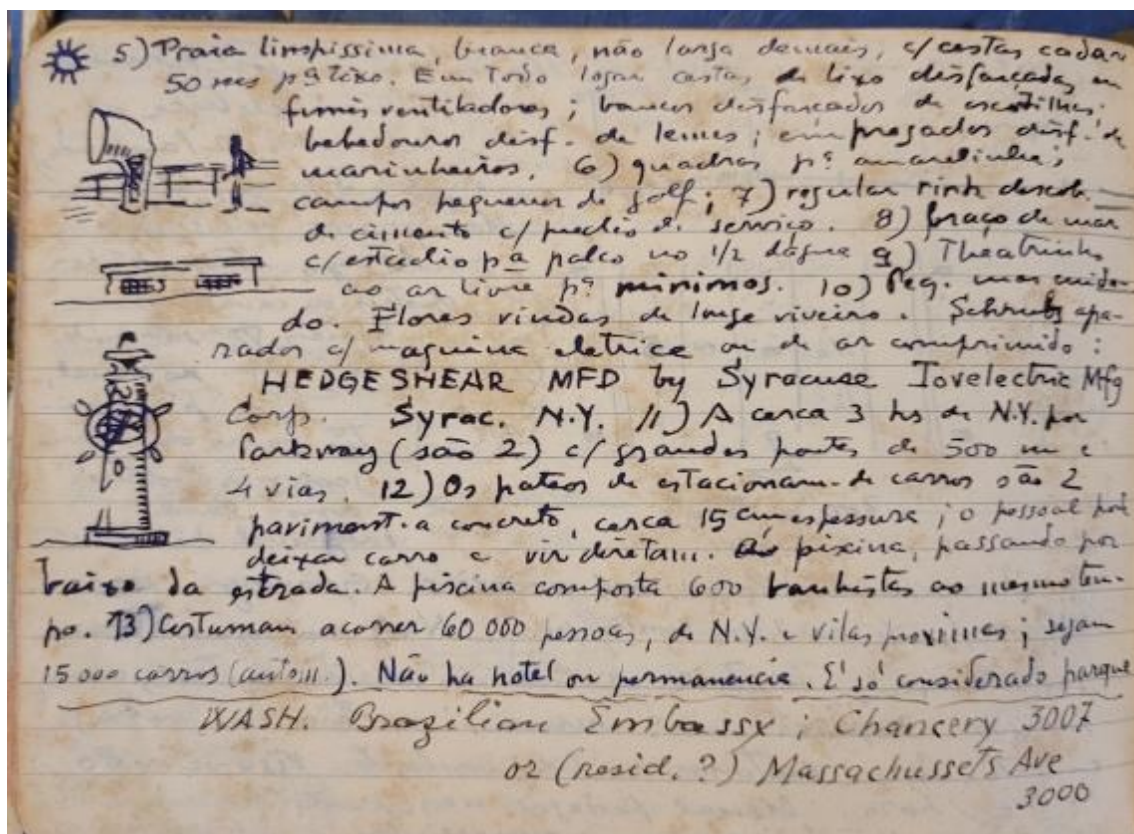 5) Praia limpissima, branca, não larga demais, c/ cestas cada
50 ms pª lixo. Em todo logar cestas de lixo disfarçadas em
fumis ventiladores; bancos disfarçados de escotilhas;
bebedouros disf. de lemes; empregados disf. de
marinheiros. 6) quadras pª amarelinha;
campos pequenos de golf; 7) regular rink descob.
de cimento c/ predio de serviço. 8) braço de mar
c/ estadio pª palco no 1/2 dágua 9) Theatrinho
ao ar livre pª minimos. 10) Peq. mas cuida-
do. Flores vindas de longe viveiro. Schrubs apa-
rados c/ maquina eletrica ou de ar comprimido:
HEDGESHEAR MFD by Syracuse Tovelectric Mfg
Corp. Syrac. N.Y. 11) A cerca 3 hs de N.Y. por
Parkway (são 2) c/ grandes pontes de 500 m e
4 vias. 12) Os pateos de estacionam. de carros são 2
paviment. a concreto, cerca 15 cm espessura; o pessoal pode
deixar carro e vir diretam. piscina, passando por
baixo da estrada. A piscina comporta 600 banhistas ao mesmo tem-
po. 13) Costumam acorrer 60 000 pessoas, de N.Y. e vilas proximas; sejam
15 000 carros (autom.). Não ha hotel ou permanencia. E' só considerado parque
WASH. Brazilian Embassy; Chancery 3007
or (resid. ?) Massachussets Ave
3000